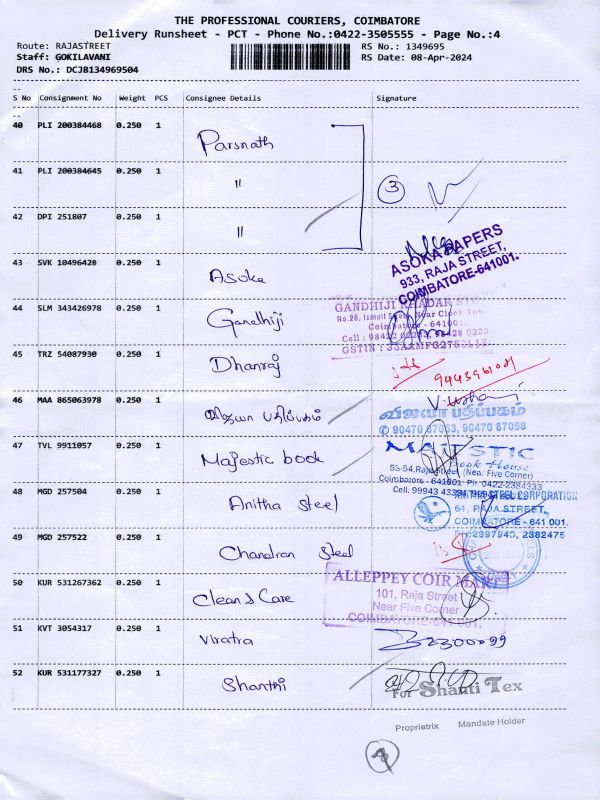 THE PROFESSIONAL COURIERS, COIMBATORE
Delivery Runsheet - PCT - Phone No.:0422-3505555 - Page No.:4
Route: RAJASTREET RS No.: 1349695
Staff: GOKILAVANI RS Date: 08-Apr-2024
DRS No.: DCJB134969504
S No Consignment No Weight PCS Consignee Details Signature
40 PLI 200384468 0.250 1 Parsnath
41 PLI 200384645 0.250 1 " 3
42 DPI 251807 0.250 1 "
ASOKA PAPERS
933, RAJA STREET,
COIMBATORE-641001.
43 SVK 10496428 0.250 1 Asoka
GANDHIJI KHADAR
No.26, Ismail Street, Near Clock Tower
Coimbatore - 641001.
44 SLM 343426978 0.250 1 Gandhiji
45 TRZ 54087930 0.250 1 Dhanraj
46 MAA 865063978 0.250 1 விஜயா பதிப்பகம்
விஜயா பதிப்பகம்
90470 87053, 90470 87058
47 TVL 9911057 0.250 1 Majestic book
MAJESTIC
Book House
53-54, Raja Street (Near Five Corner)
Coimbatore - 641001 Ph: 0422-2384333
48 MGD 257504 0.250 1 Anitha Steel
ANITHA STEEL CORPORATION
64, RAJA STREET,
COIMBATORE - 641 001.
Ph:2397940, 2382475
49 MGD 257522 0.250 1 Chandran Steel
50 KUR 531267362 0.250 1 Clean & Care
ALLEPPEY COIR MART
101, Raja Street
Near Five Corner
COIMBATORE-641 001.
51 KVT 3054317 0.250 1 Viratra
52 KUR 531177327 0.250 1 Shanthi
For Shanti Tex
Proprietrix Mandate Holder